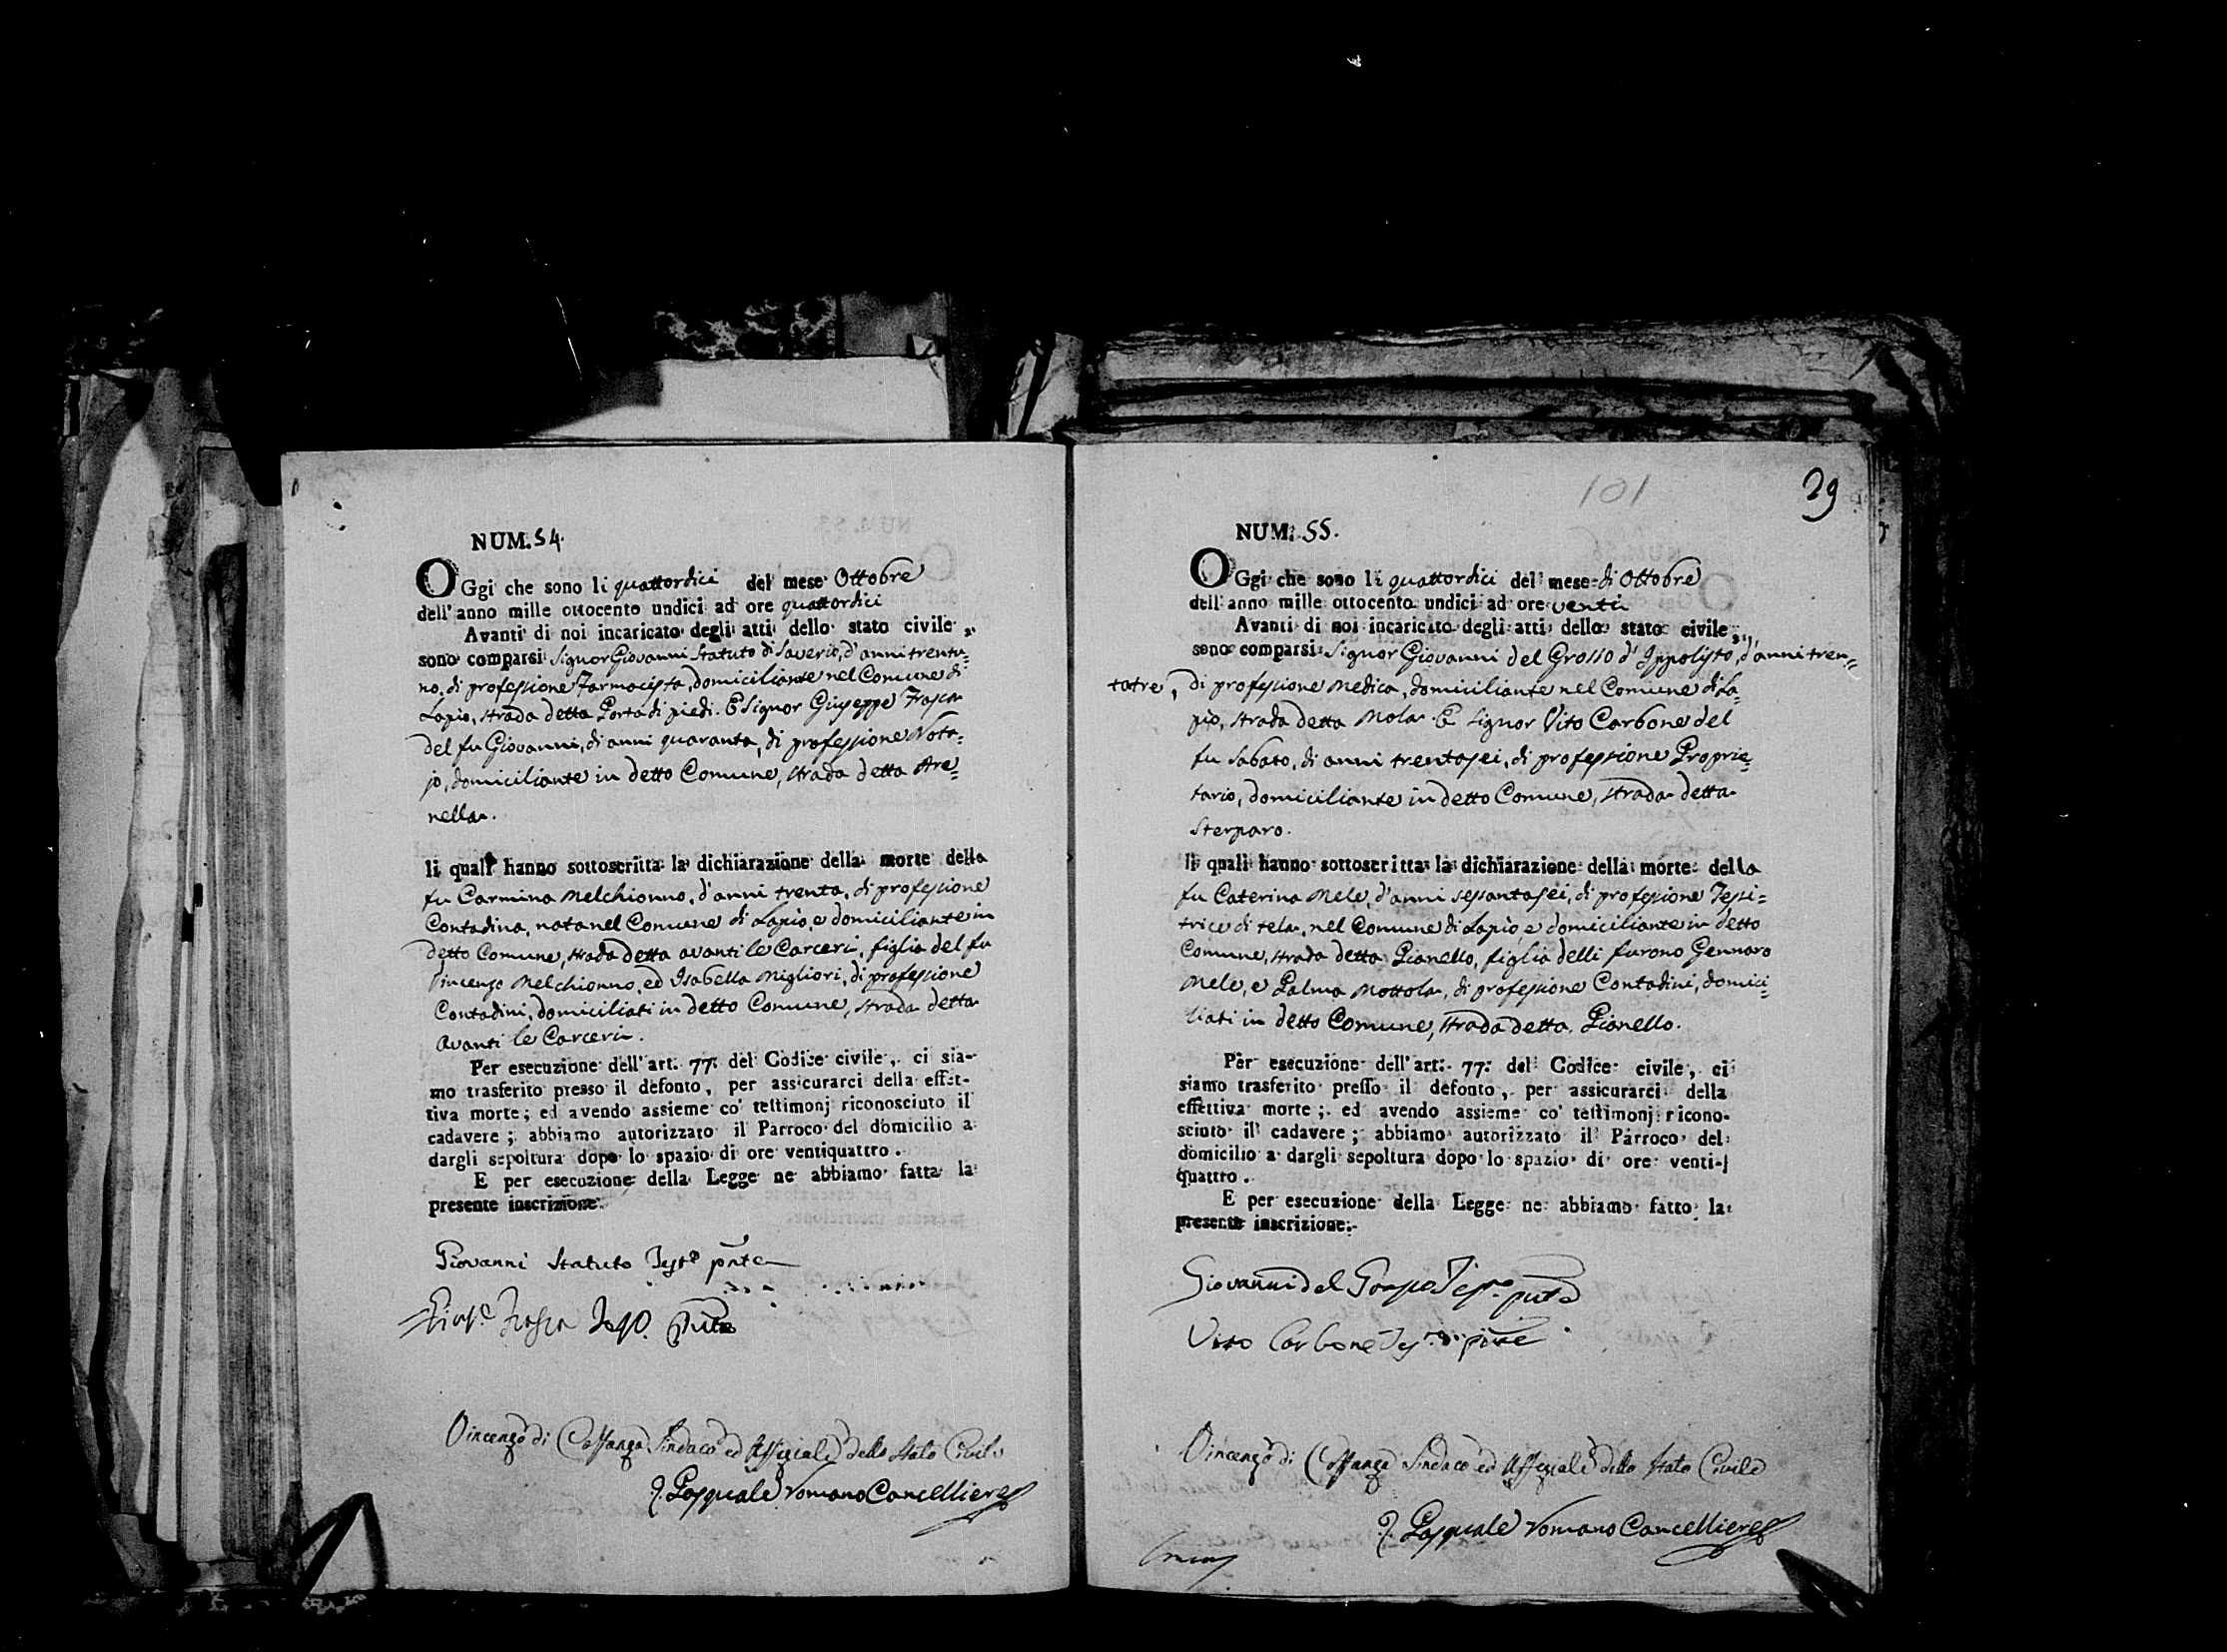 NUM. 54.
OGgi che sono li quattordici del mese Ottobre
dell'anno mille ottocento undici ad ore quattordici
Avanti di noi incaricato degli atti dello stato civile,
sono comparsi Signor Giovanni Statuto di Saverio, d'anni trentu=
no, di professione Farmacista, domiciliante nel Comune di
Lapio, strada detta Porta di piedi. E Signor Giuseppe Frasca
del fu Giovanni, di anni quaranta, di professione Nota=
jo, domiciliante in detto Comune, strada detta Are=
nella.
li quali hanno sottoscritta la dichiarazione della morte della
fu Carmina Melchionno, d'anni trenta, di professione
Contadina, nata nel Comune di Lapio, e domiciliante in
detto Comune, strada detta avanti le Carceri, figlia del fu
Vincenzo Melchionno, ed Isabella Migliori, di professione
Contadini, domiciliati in detto Comune, strada detta
avanti le Carceri.
Per esecuzione dell'art. 77. del Codice civile, ci sia-
mo trasferito presso il defonto, per assicurarci della effet-
tiva morte; ed avendo assieme co' testimonj riconosciuto il
cadavere; abbiamo autorizzato il Parroco del domicilio a
dargli sepoltura dopo lo spazio di ore ventiquattro.
E per esecuzione della Legge ne abbiamo fatta la
presente inscrizione.
Giovanni Statuto
Frasca
Vincenzo di Costanzo Sindaco ed Uffiziale dello Stato Civile
Pasquale Romano Cancelliere
101
29
NUM. 55.
OGgi che sono li quattordici del mese di Ottobre
dell'anno mille ottocento undici ad ore venti
Avanti di noi incaricato degli atti dello stato civile,
sono comparsi Signor Giovanni del Grosso d'Ippolisto, d'anni tren=
tatre, di professione Medica, domiciliante nel Comune di La=
pio, strada detta Mola. E Signor Vito Carbone del
fu Sabato, di anni trentasei, di professione Proprie=
tario, domiciliante in detto Comune, strada detta
Sterparo.
li quali hanno sottoscritta la dichiarazione della morte della
fu Caterina Mele, d'anni sessantasei, di professione Tessi=
trice di tela, nel Comune di Lapio, e domiciliante in detto
Comune, strada detta Pianello, figlia delli furono Gennaro
Mele, e Palma Mottola, di professione Contadini, domici=
liati in detto Comune, strada detta Pianello.
Per esecuzione dell'art. 77. del Codice civile, ci
siamo trasferito presso il defonto, per assicurarci della
effettiva morte; ed avendo assieme co' testimonj ricono-
sciuto il cadavere; abbiamo autorizzato il Parroco del
domicilio a dargli sepoltura dopo lo spazio di ore venti-
quattro.
E per esecuzione della Legge ne abbiamo fatto la
presente inscrizione.
Giovanni del Grosso
Vito Carbone
Vincenzo di Costanzo Sindaco ed Uffiziale dello Stato Civile
Pasquale Romano Cancelliere